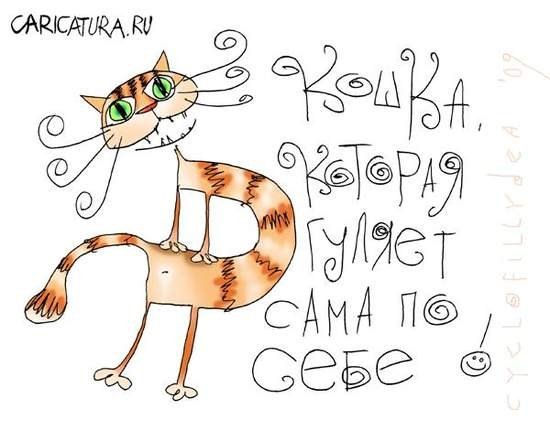 CARICATURA.RU
КОШКА,
КОТОРАЯ
ГУЛЯЕТ
САМА ПО
СЕБЕ
cyclofillydea '09